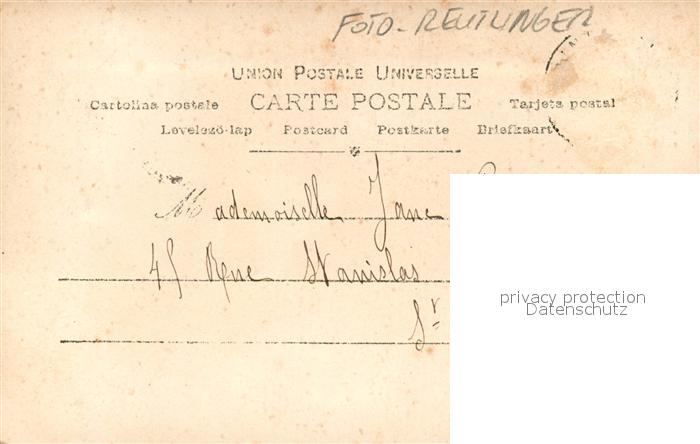 FOTO-REUTLINGER
UNION POSTALE UNIVERSELLE
Cartolina postale CARTE POSTALE Tarjeta postal
Levelező-lap Postcard Postkarte Briefkaart
Mademoiselle Jane
45 Rue Stanislas
privacy protection
Datenschutz